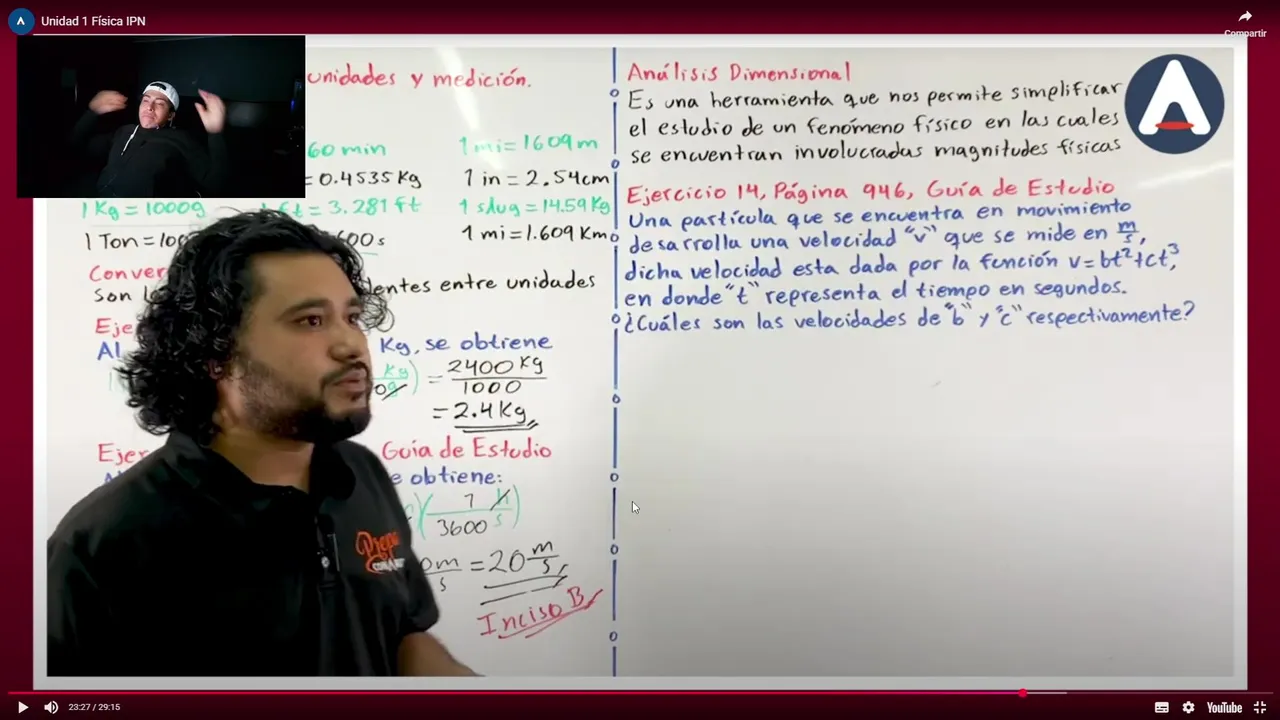 Unidad 1 Física IPN
Compartir
unidades y medición.
60 min
1 mi = 1609 m
= 0.4535 Kg
1 in = 2.54cm
1 Kg = 1000g
ft = 3.281 ft
1 slug = 14.59 Kg
1 Ton = 100
600 s
1 mi = 1.609 Km
Conver
son l
lentes entre unidades
Eje
Al
Kg, se obtiene
Kg
0g
= 2400 Kg
1000
= 2.4 Kg
Ejer
Guía de Estudio
e obtiene:
1 h
3600 s
0m
s
= 20 m
s
Inciso B
Análisis Dimensional
Es una herramienta que nos permite simplificar
el estudio de un fenómeno físico en las cuales
se encuentran involucradas magnitudes físicas
Ejercicio 14, Página 946, Guía de Estudio
Una partícula que se encuentra en movimiento
desarrolla una velocidad "v" que se mide en m/s,
dicha velocidad esta dada por la función v=bt²+ct³,
en donde "t" representa el tiempo en segundos.
¿Cuáles son las velocidades de "b" y "c" respectivamente?
23:27 / 29:15
YouTube